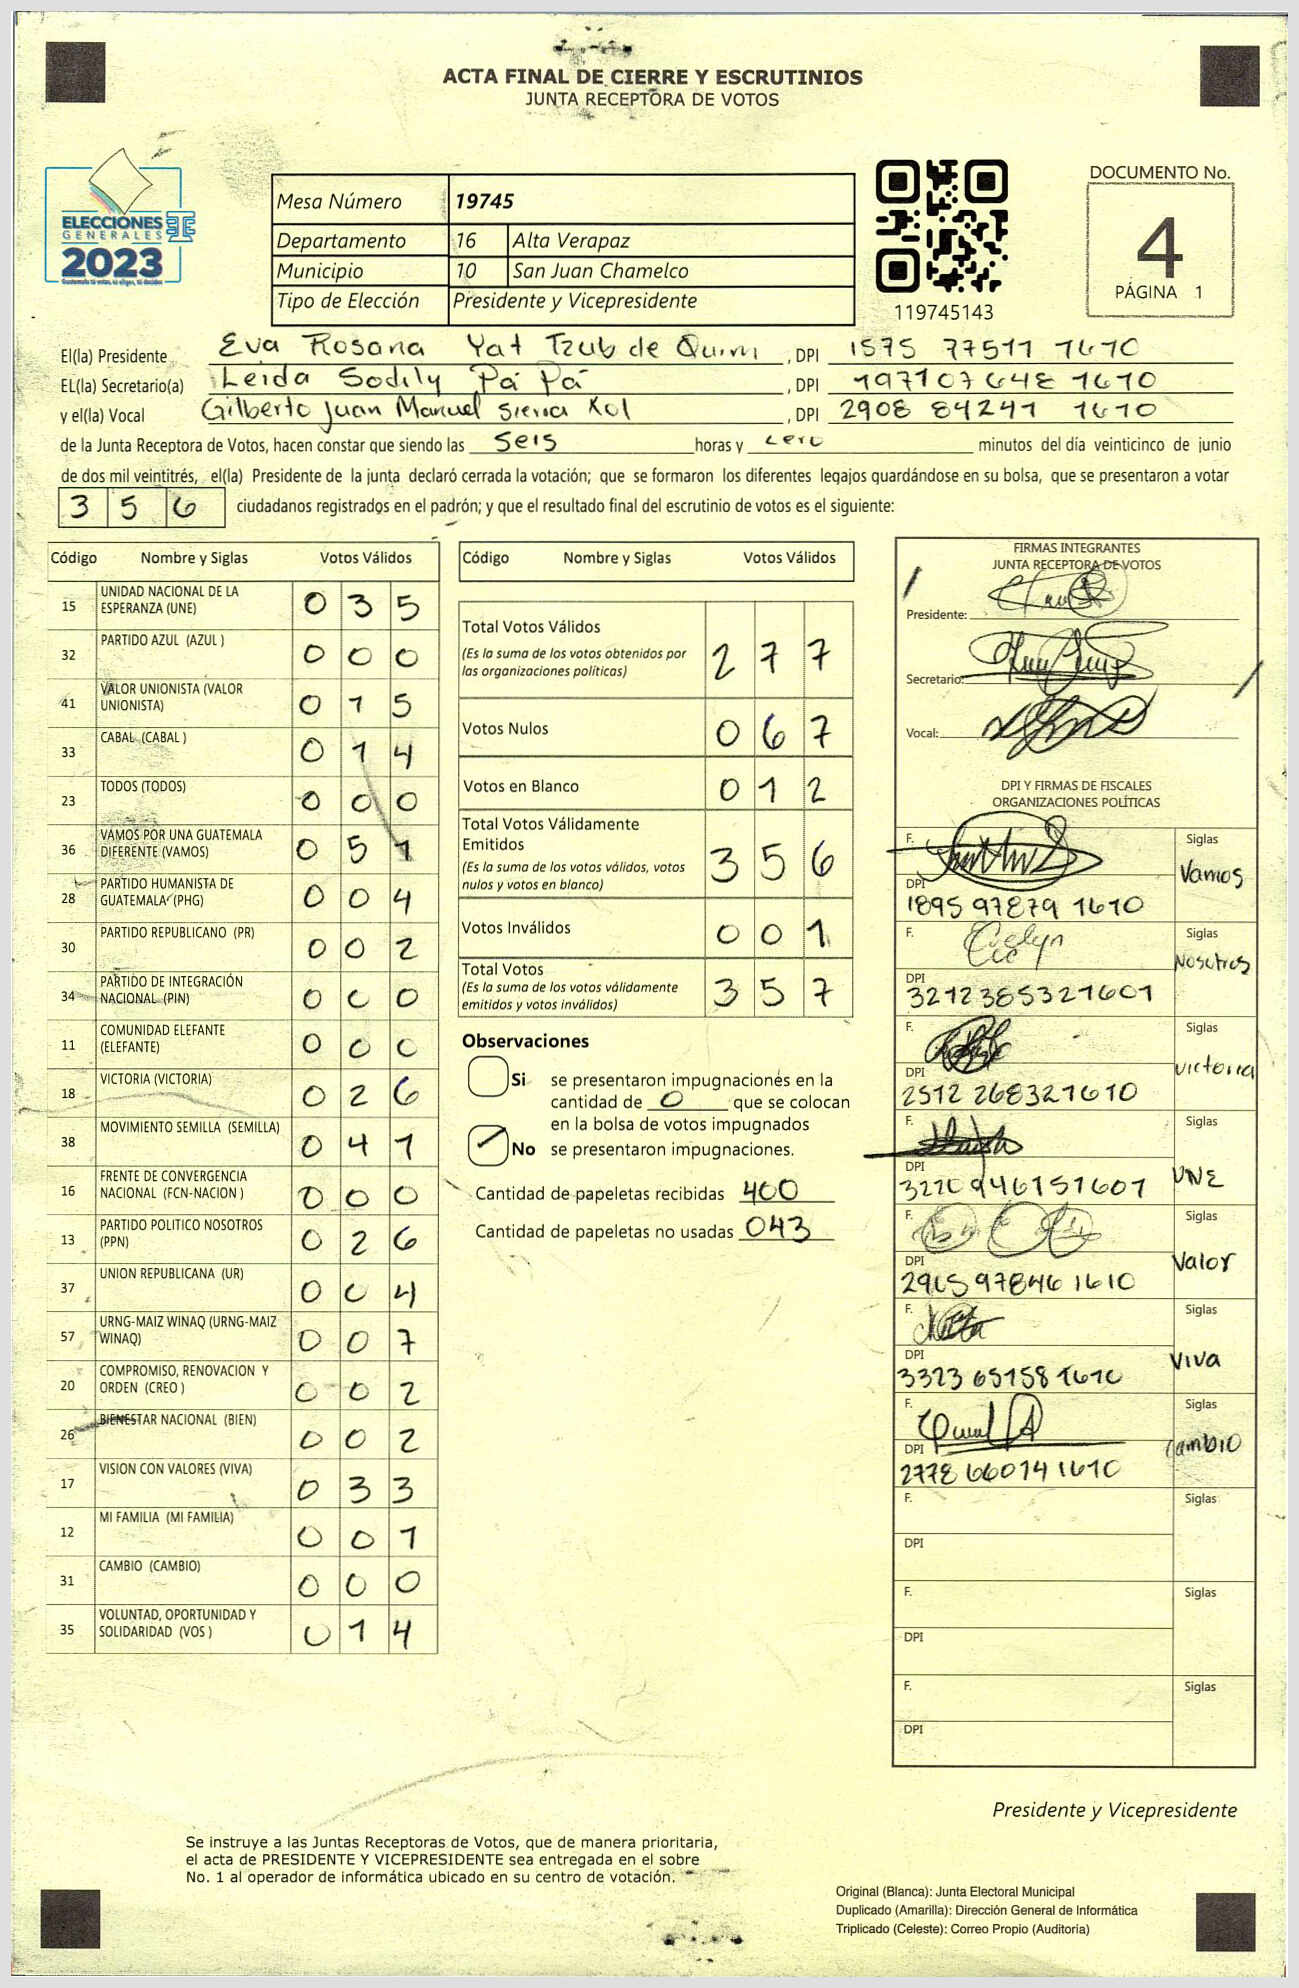 ACTA FINAL DE CIERRE Y ESCRUTINIOS
JUNTA RECEPTORA DE VOTOS
ELECCIONES
GENERALES
2023
Mesa Número 19745
Departamento 16 Alta Verapaz
Municipio 10 San Juan Chamelco
Tipo de Elección Presidente y Vicepresidente
119745143
DOCUMENTO No.
4
PÁGINA 1
El(la) Presidente Eva Rosana Yat Tzub de Quim , DPI 1575 77511 1610
EL(la) Secretario(a) Leida Sodily Pá Pá , DPI 197107648 1610
y el(la) Vocal Gilberto Juan Manuel Sierra Xol , DPI 2908 84241 1610
de la Junta Receptora de Votos, hacen constar que siendo las seis horas y cero minutos del día veinticinco de junio
de dos mil veintitrés, el(la) Presidente de la junta declaró cerrada la votación; que se formaron los diferentes legajos guardándose en su bolsa, que se presentaron a votar
356 ciudadanos registrados en el padrón; y que el resultado final del escrutinio de votos es el siguiente:
Código Nombre y Siglas Votos Válidos
15 UNIDAD NACIONAL DE LA ESPERANZA (UNE) 035
32 PARTIDO AZUL (AZUL ) 000
41 VALOR UNIONISTA (VALOR UNIONISTA) 015
33 CABAL (CABAL ) 014
23 TODOS (TODOS) 000
36 VAMOS POR UNA GUATEMALA DIFERENTE (VAMOS) 051
28 PARTIDO HUMANISTA DE GUATEMALA (PHG) 004
30 PARTIDO REPUBLICANO (PR) 002
34 PARTIDO DE INTEGRACIÓN NACIONAL (PIN) 000
11 COMUNIDAD ELEFANTE (ELEFANTE) 000
18 VICTORIA (VICTORIA) 026
38 MOVIMIENTO SEMILLA (SEMILLA) 041
16 FRENTE DE CONVERGENCIA NACIONAL (FCN-NACION ) 000
13 PARTIDO POLITICO NOSOTROS (PPN) 026
37 UNION REPUBLICANA (UR) 004
57 URNG-MAIZ WINAQ (URNG-MAIZ WINAQ) 007
20 COMPROMISO, RENOVACION Y ORDEN (CREO ) 002
26 BIENESTAR NACIONAL (BIEN) 002
17 VISION CON VALORES (VIVA) 033
12 MI FAMILIA (MI FAMILIA) 001
31 CAMBIO (CAMBIO) 000
35 VOLUNTAD, OPORTUNIDAD Y SOLIDARIDAD (VOS ) 014
Código Nombre y Siglas Votos Válidos
Total Votos Válidos 277
(Es la suma de los votos obtenidos por
las organizaciones políticas)
Votos Nulos 067
Votos en Blanco 012
Total Votos Válidamente
Emitidos 356
(Es la suma de los votos válidos, votos
nulos y votos en blanco)
Votos Inválidos 001
Total Votos 357
(Es la suma de los votos válidamente
emitidos y votos inválidos)
Observaciones
Si se presentaron impugnaciones en la
cantidad de 0 que se colocan
en la bolsa de votos impugnados
No se presentaron impugnaciones.
Cantidad de papeletas recibidas 400
Cantidad de papeletas no usadas 043
FIRMAS INTEGRANTES
JUNTA RECEPTORA DE VOTOS
Presidente:
Secretario:
Vocal:
DPI Y FIRMAS DE FISCALES
ORGANIZACIONES POLÍTICAS
F. Siglas
Vamos
DPI
1895 97879 1610
F. Evelyn Siglas
Nosotros
DPI
3212385321601
F. Siglas
victoria
DPI
2512 268321610
F. Siglas
UNE
DPI
3220946151601
F. Siglas
Valor
DPI
2965978461610
F. Siglas
Viva
DPI
3323 65158 1610
F. Siglas
Cambio
DPI
2778 660741610
F. Siglas
DPI
F. Siglas
DPI
F. Siglas
DPI
Presidente y Vicepresidente
Se instruye a las Juntas Receptoras de Votos, que de manera prioritaria,
el acta de PRESIDENTE Y VICEPRESIDENTE sea entregada en el sobre
No. 1 al operador de informática ubicado en su centro de votación.
Original (Blanca): Junta Electoral Municipal
Duplicado (Amarilla): Dirección General de Informática
Triplicado (Celeste): Correo Propio (Auditoría)